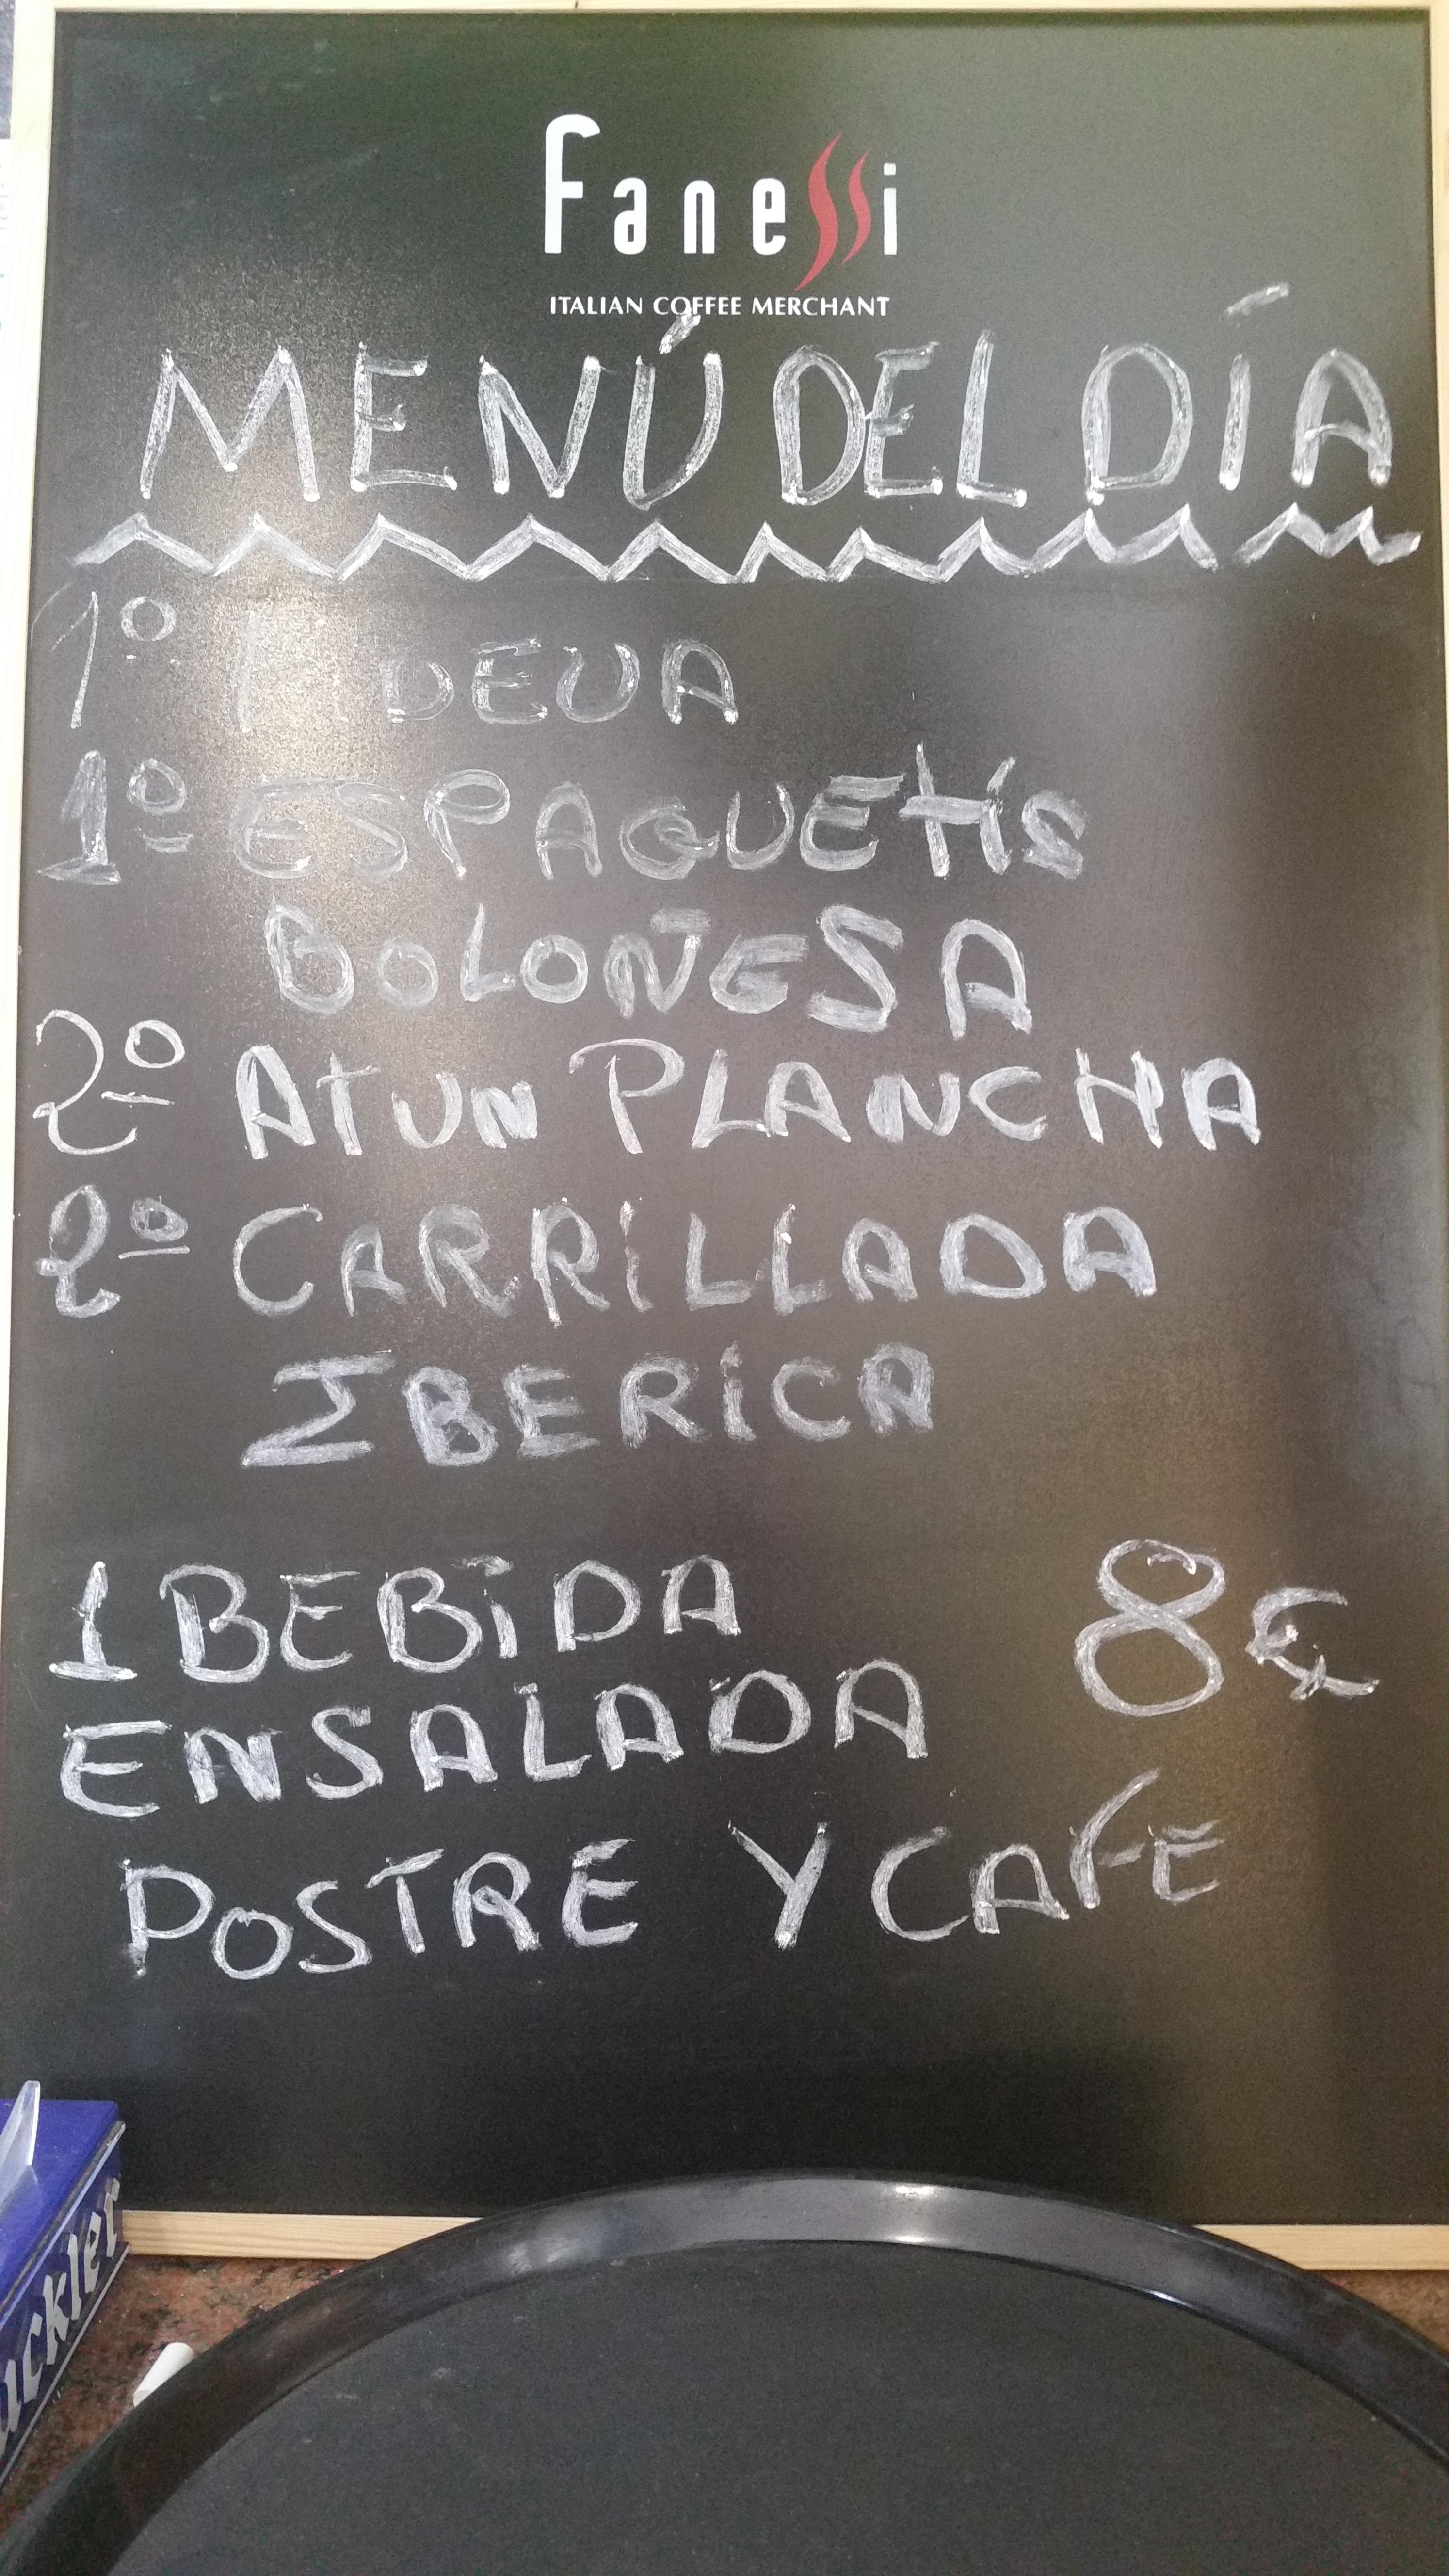 Fanessi
ITALIAN COFFEE MERCHANT
MENÚ DEL DÍA
1º FIDEUA
1º ESPAQUETIS
BOLOÑESA
2º ATUN PLANCHA
2º CARRILLADA
IBERICA
1 BEBIDA 8€
ENSALADA
POSTRE Y CAFE
uckler